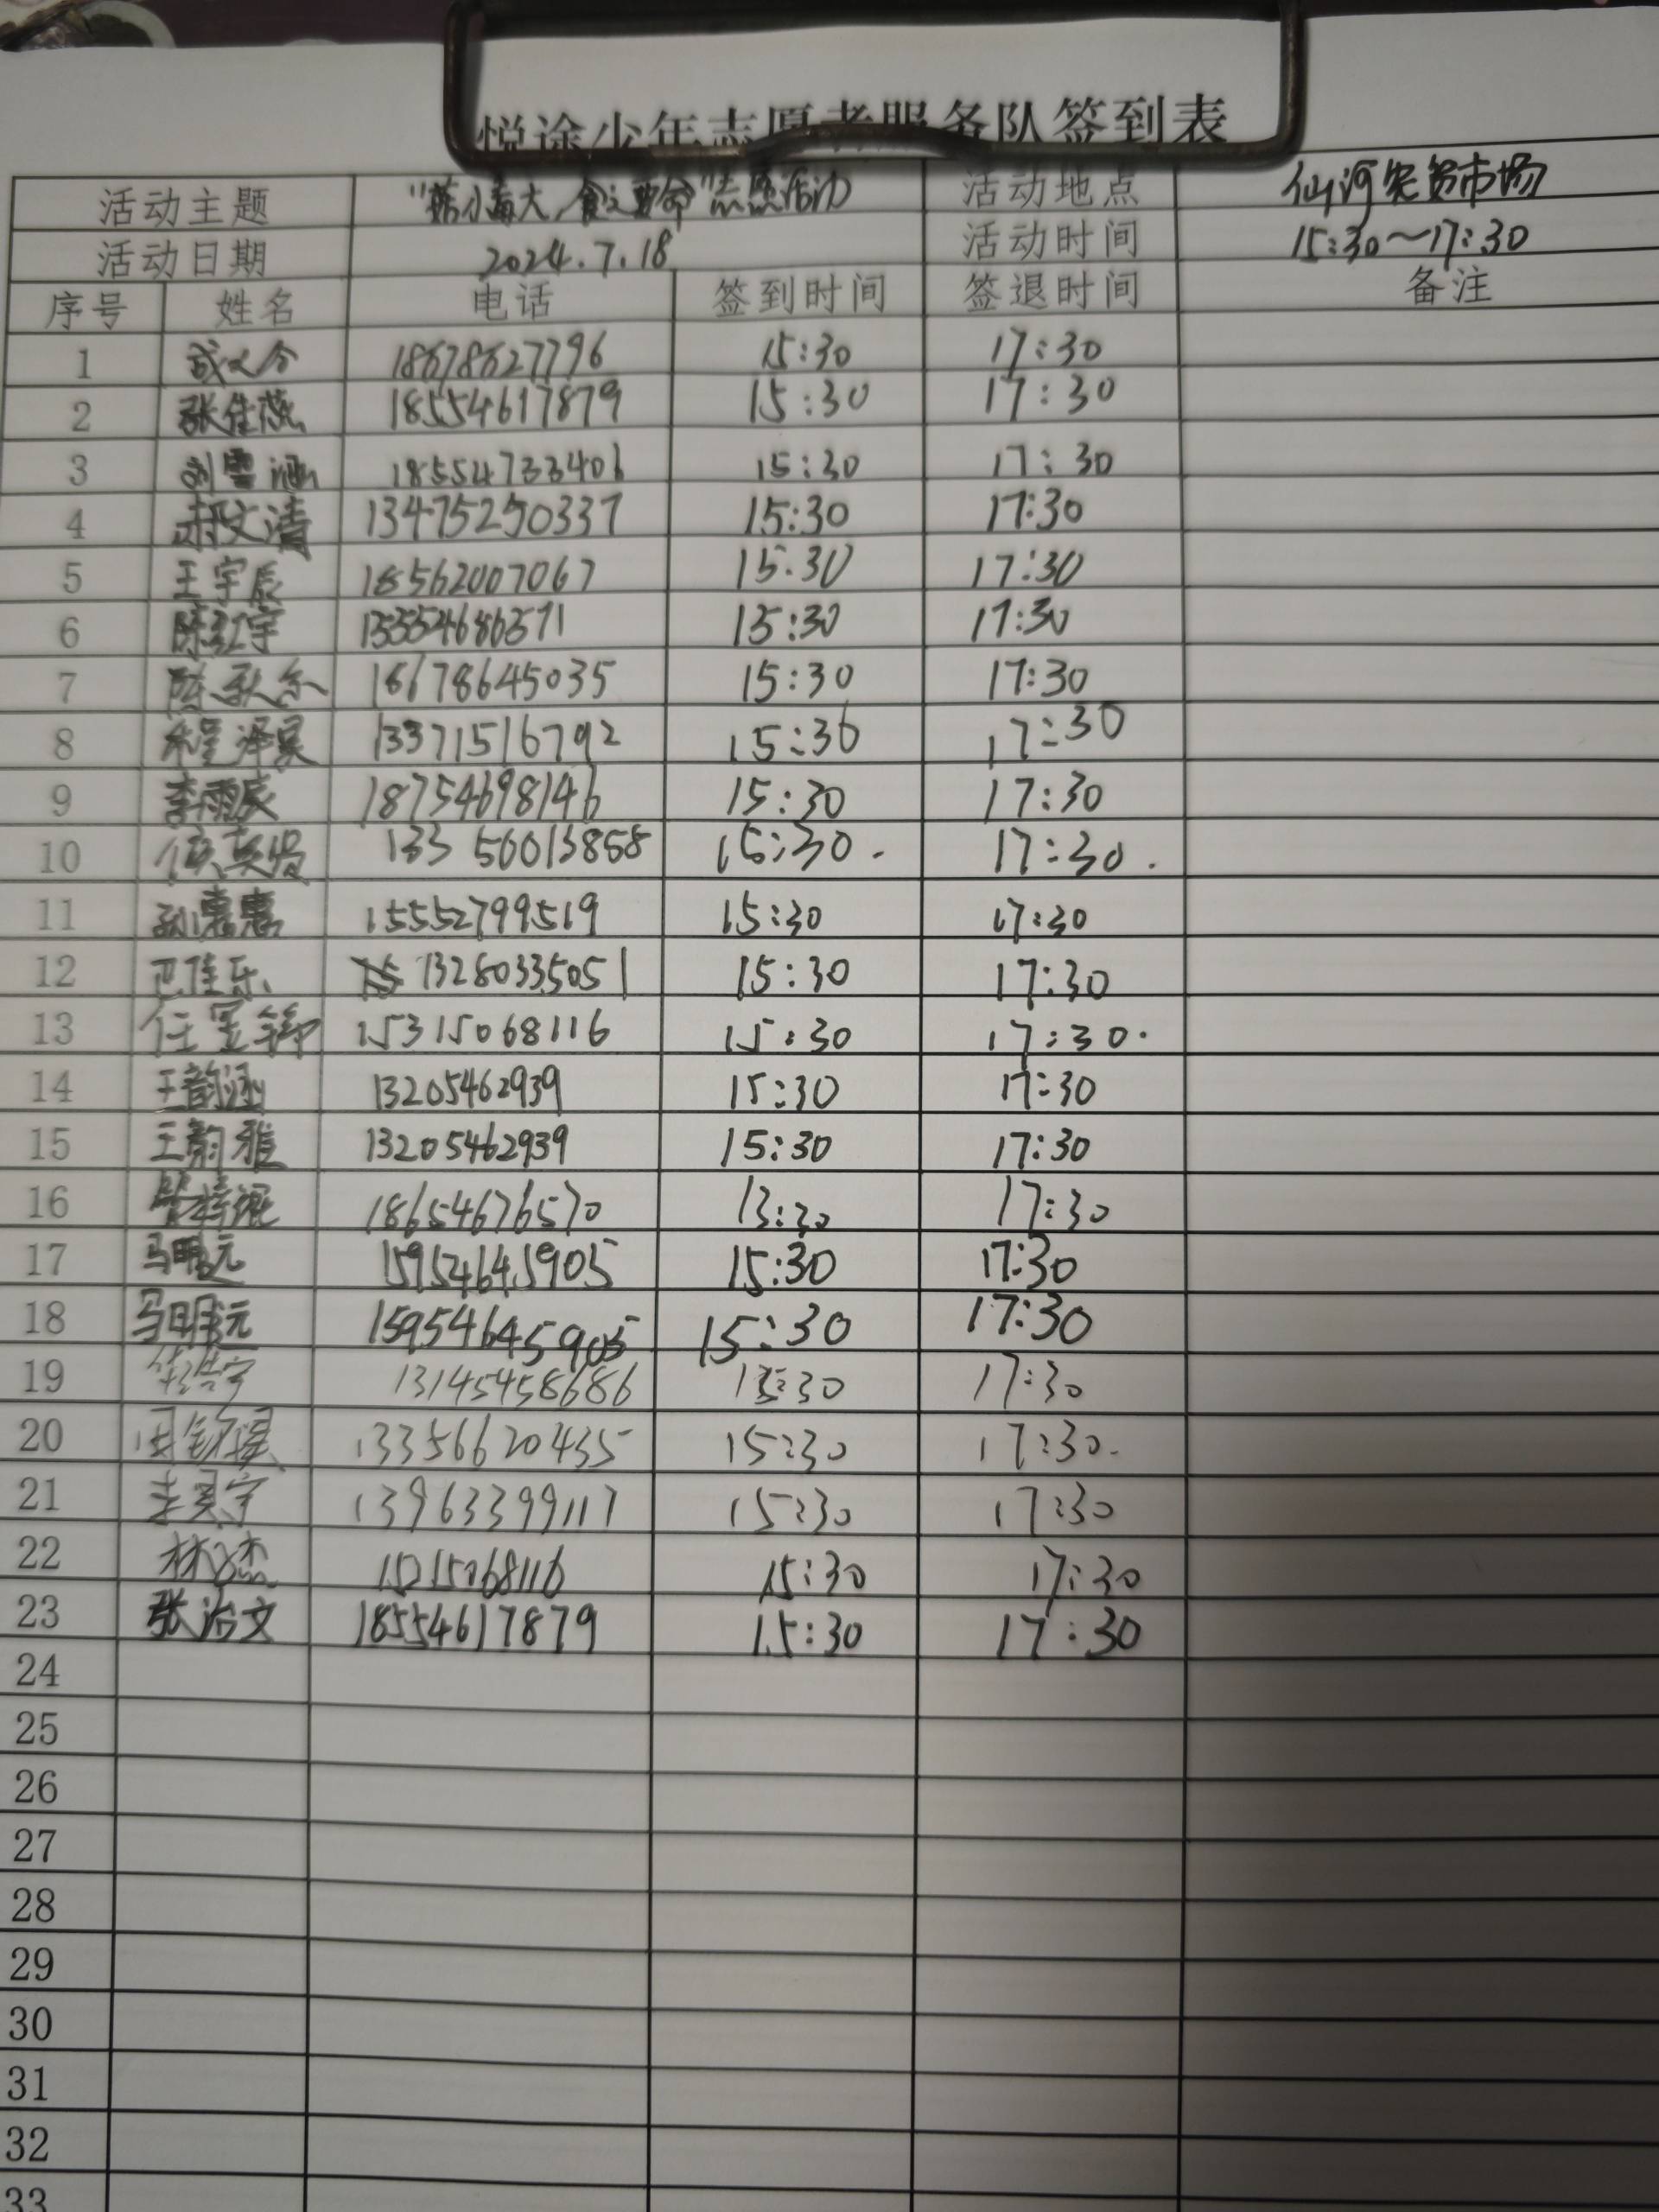 悦途少年志愿者服务队签到表
活动主题 志愿活动 活动地点 仙河农贸市场
活动日期 2024.7.18 活动时间 15:30~17:30
序号 姓名 电话 签到时间 签退时间 备注
1 18678627796 15:30 17:30
2 张佳蕊 18554617879 15:30 17:30
3 刘雪涵 18554733406 15:30 17:30
4 郝文清 13475250337 15:30 17:30
5 王宇辰 18562007067 15:30 17:30
6 陈红宇 15:30 17:30
7 16678645035 15:30 17:30
8 程泽昊 13371516792 15:30 17:30
9 李雨辰 18754698146 15:30 17:30
10 13356013858 15:30. 17:30.
11 孙惠惠 15552799519 15:30 17:30
12 13280335051 15:30 17:30
13 15315068116 15:30 17:30.
14 王韵涵 13205462939 15:30 17:30
15 王韵雅 13205462939 15:30 17:30
16 18654676570 17:30
17 15954645905 15:30 17:30
18 马明元 15954645905 15:30 17:30
19 13145458686 15:30 17:30
20 13356620435 15:30 17:30.
21 李昊宇 13963399117 15:30 17:30
22 15:30 17:30
23 张治文 18554617879 15:30 17:30
24
25
26
27
28
29
30
31
32
33